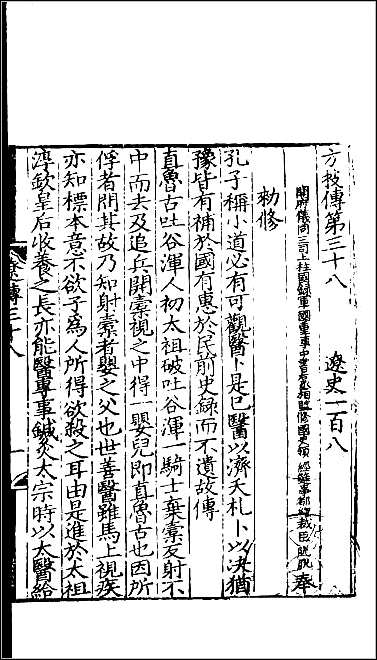 方技傳第三十八　遼史一百八
開府儀同三司上柱國錄軍國重事中書右丞相監修國史領經筵事都總裁臣脫脫奉
勑修
孔子稱小道必有可觀醫卜是已醫以濟夭札卜以決猶
豫皆有補於國有惠於民前史錄而不遺故傳
直魯古吐谷渾人初太祖破吐谷渾一騎士棄橐反射不
中而去及追兵開橐視之中得一嬰兒即直魯古也因所
俘者問其故乃知射橐者嬰之父也世善醫雖馬上視疾
亦知標本意不欲子為人所得欲殺之耳由是進於太祖
淳欽皇后收養之長亦能醫專事鍼灸太宗時以太醫給
遼傳三十八
一